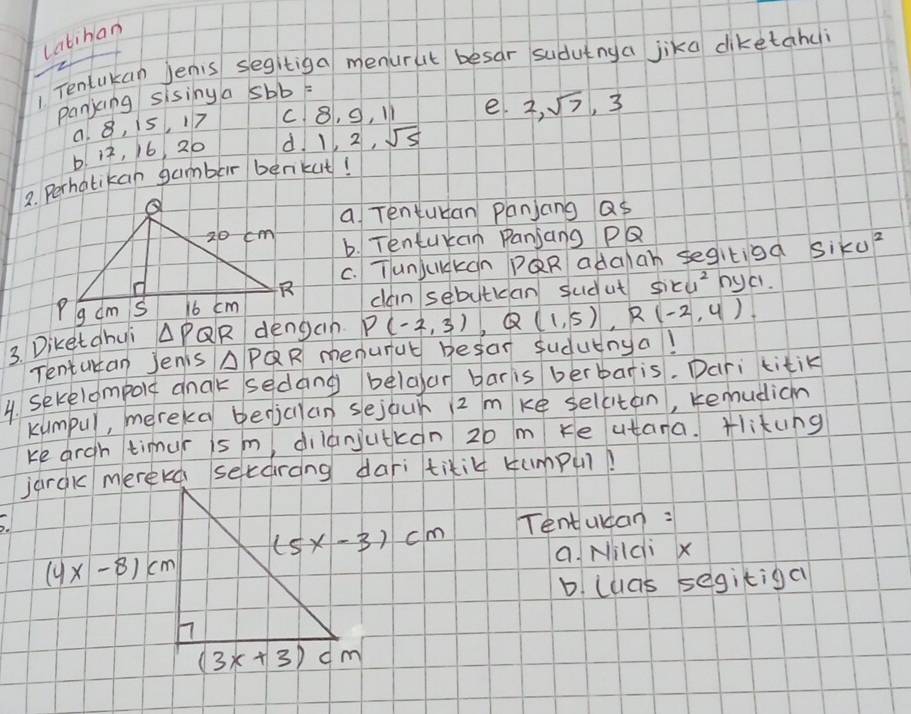 Latihan
1. Tentukan jenis segitiga menurut besar sudutnya jika diketahui
panjang sisinya sbb =
a. 8, 15, 17
c. 8, 9, 11
e. 2, √7, 3
b. 12, 16, 20
d. 1, 2, √5
2. Perhatikan gambar berikut!
Q
20 cm
P 9 cm S 16 cm R
a. Tentukan panjang QS
b. Tentukan Panjang PQ
c. Tunjukkan PQR adalah segitiga siku²
dan sebutkan sudut siku² nya.
3. Diketahui △PQR dengan P(-2,3), Q(1,5), R(-2,4).
Tentukan jenis △PQR menurut besar sudutnya!
4. Sekelompok anak sedang belajar baris berbaris. Dari titik
kumpul, mereka berjalan sejauh 12 m ke selatan, kemudian
ke arah timur 15 m, dilanjutkan 20 m ke utara. Hitung
jarak mereka sekarang dari titik kumpul!
5.
(5x-3) cm
(4x-8) cm
(3x+3) cm
Tentukan =
a. Nilai x
b. Luas segitiga